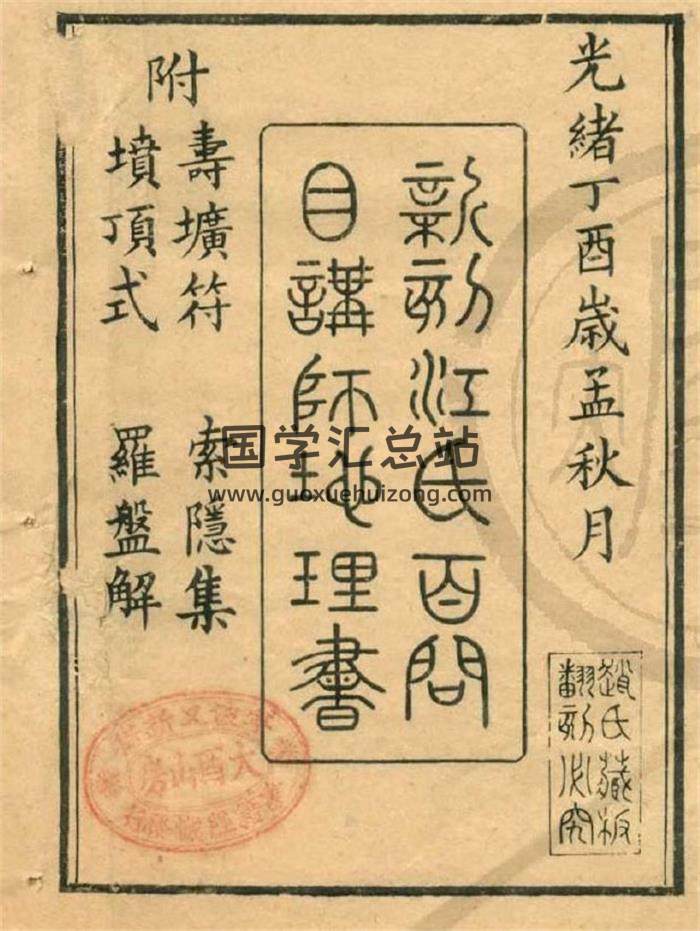 光緒丁酉歲孟秋月
趙氏藏板
翻刻必究
新刻江氏百問
目講師地理書
附
壽壙符 索隱集
墳頂式 羅盤解
国学汇总站
www.guoxuehuizong.com
大酉山房